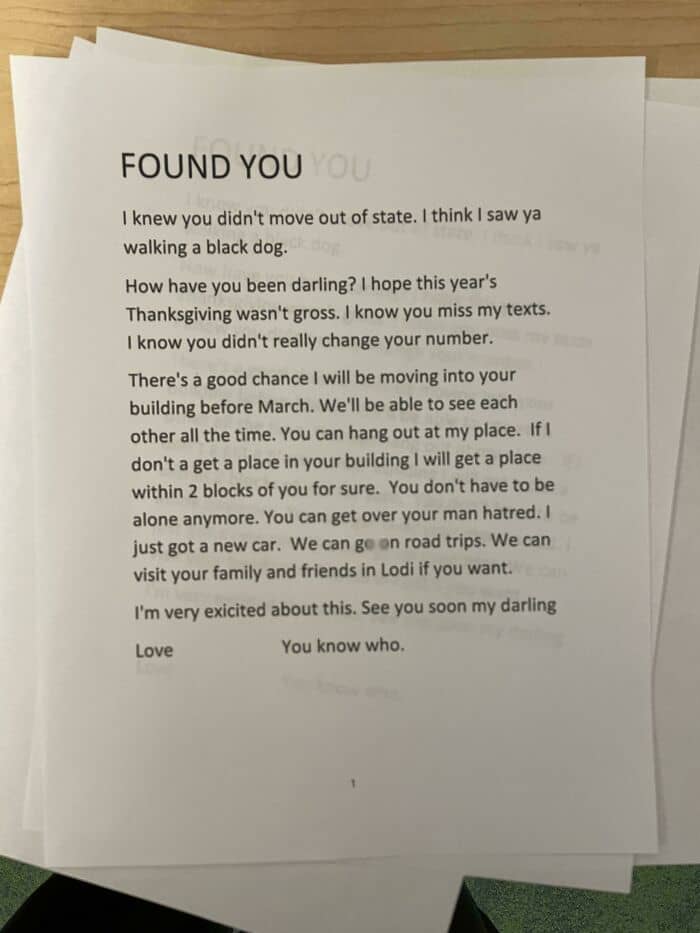 FOUND YOU
I knew you didn't move out of state. I think I saw ya
walking a black dog.
How have you been darling? I hope this year's
Thanksgiving wasn't gross. I know you miss my texts.
I know you didn't really change your number.
There's a good chance I will be moving into your
building before March. We'll be able to see each
other all the time. You can hang out at my place.  If I
don't a get a place in your building I will get a place
within 2 blocks of you for sure.  You don't have to be
alone anymore. You can get over your man hatred. I
just got a new car.  We can go on road trips. We can
visit your family and friends in Lodi if you want.
I'm very exicited about this. See you soon my darling
Love You know who.
1